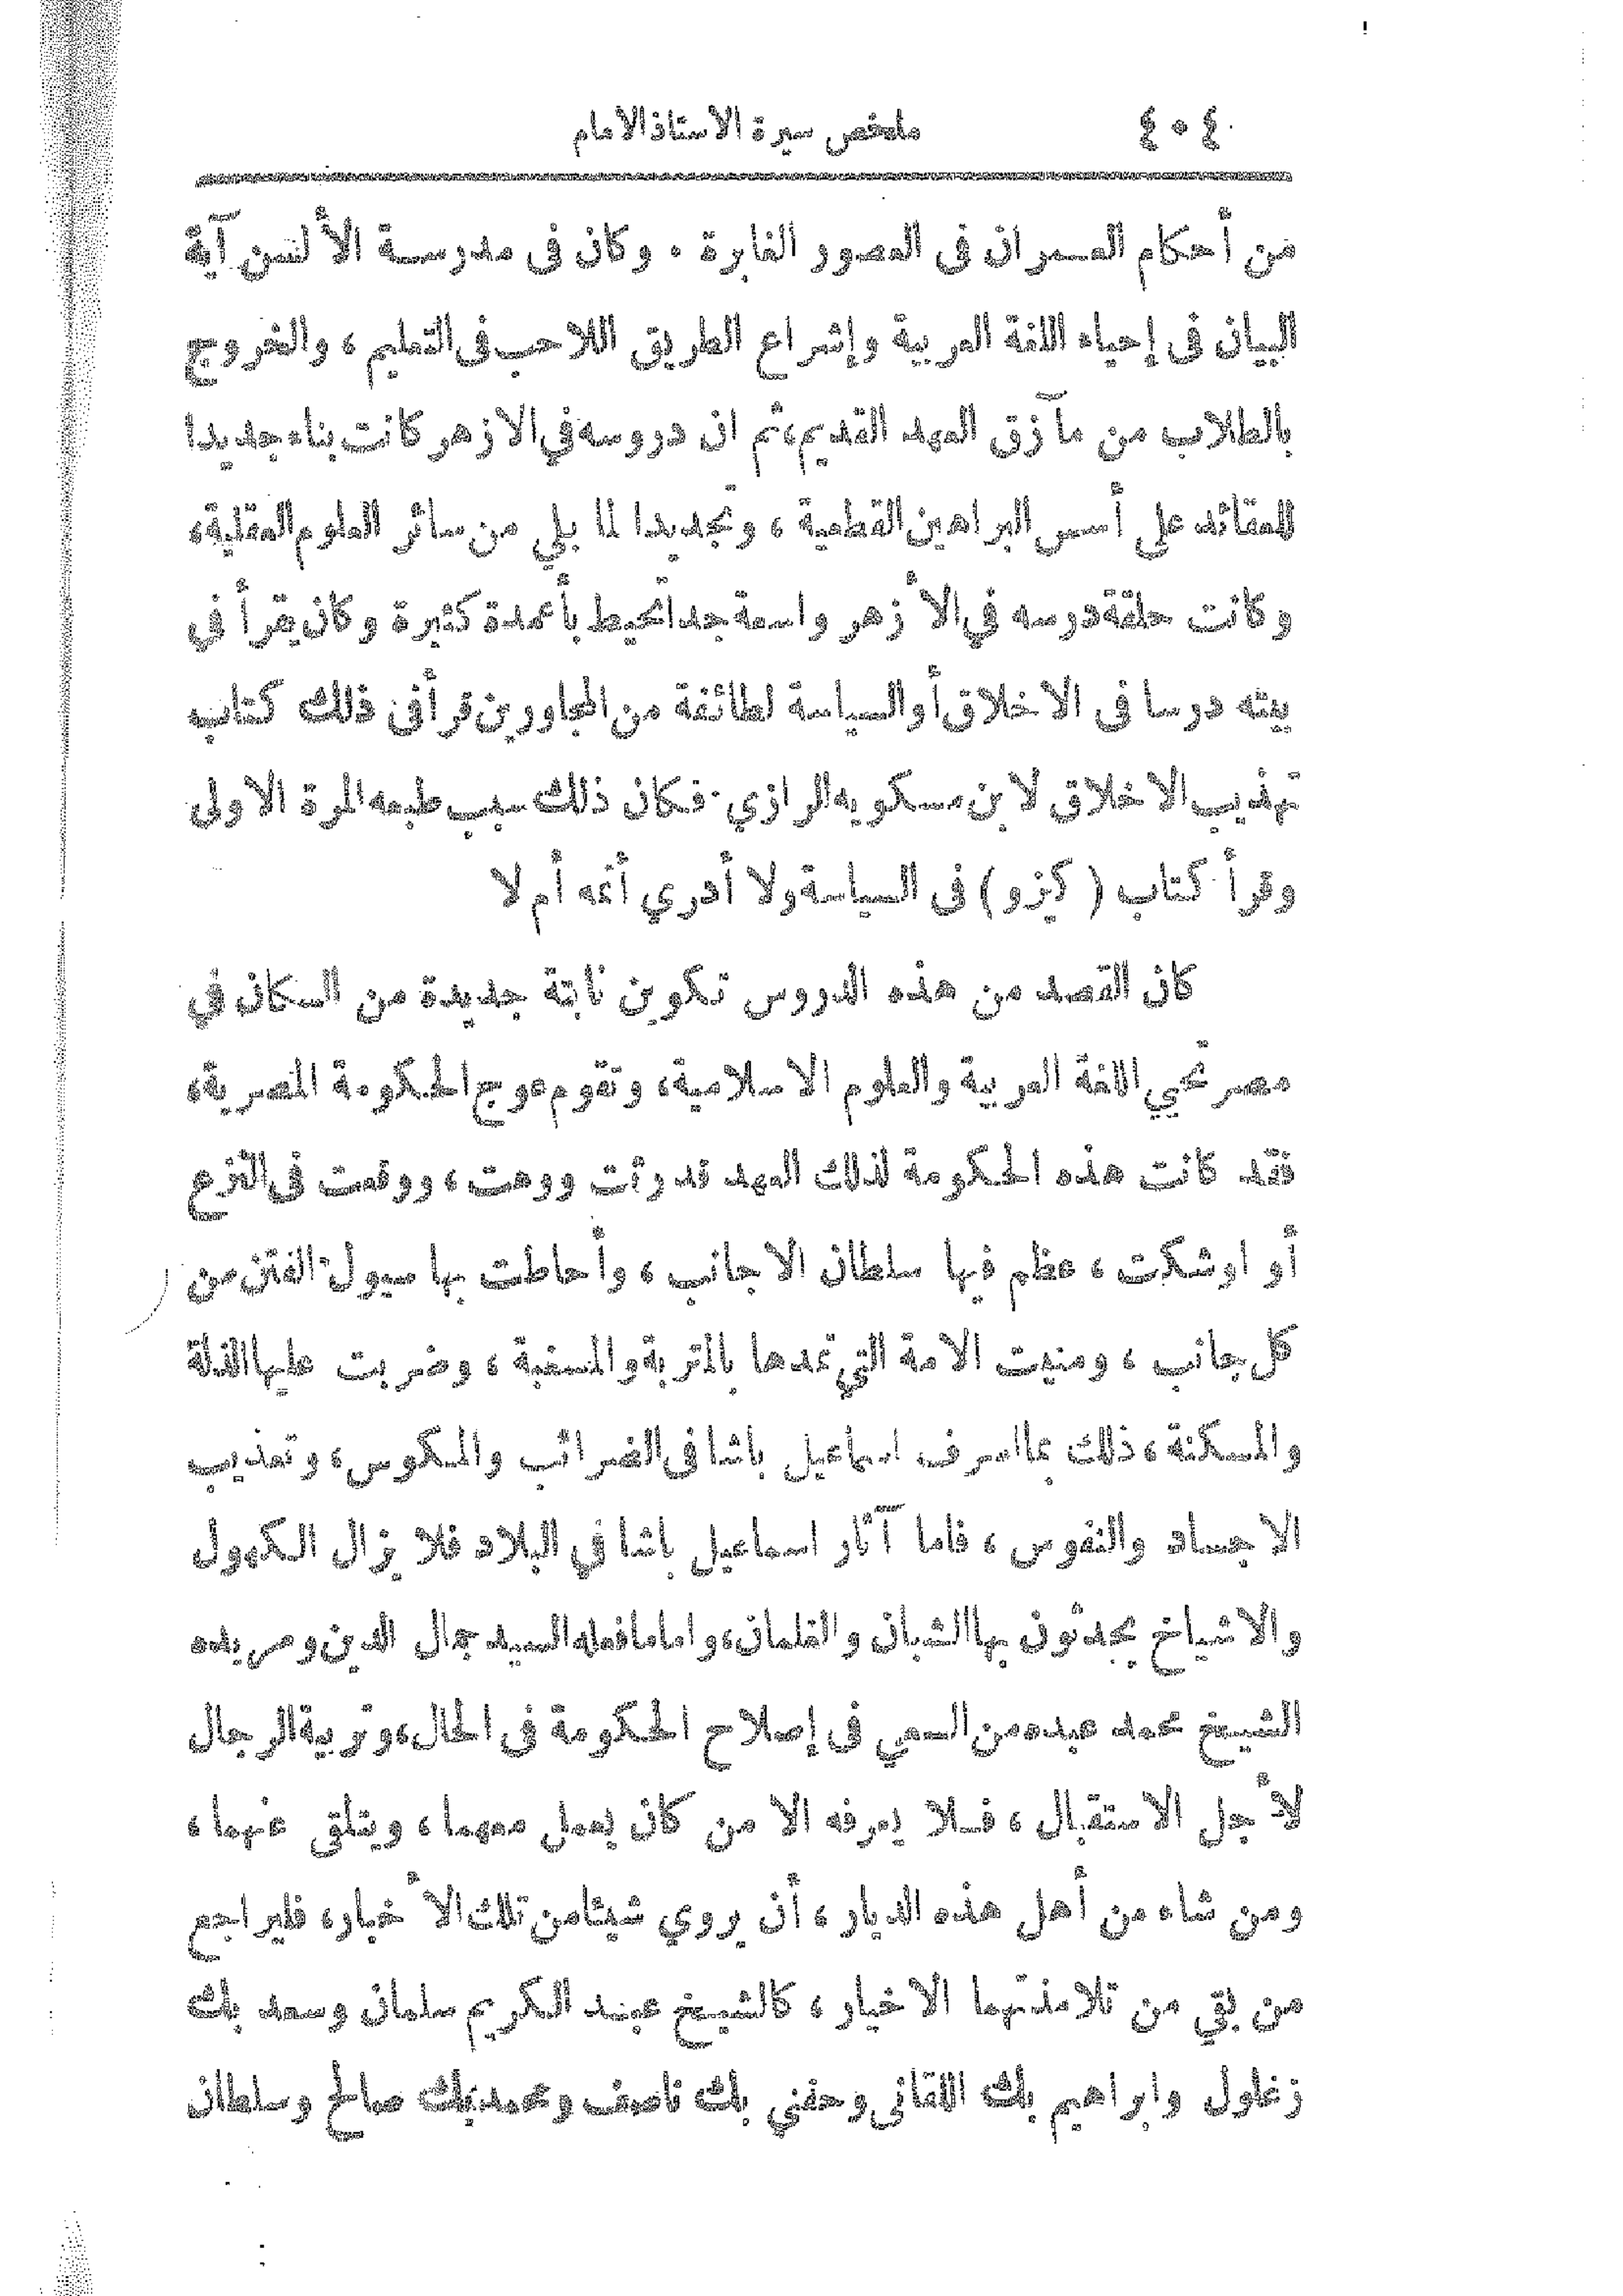 ٤٠٤ ملخص سيرة الاستاذ الامام
من أحكام العمران فى العصور الغابرة . وكان فى مدرسة الألسن آية
البيان فى إحياء اللغة العربية وإشراع الطريق اللاحب فى التعليم ، والخروج
بالطلاب من مآزق العهد القديم، ثم ان دروسه في الازهر كانت بناء جديدا
للعقائد على أسس البراهين القطعية ، وتجديدا لما بلي من سائر العلوم العقلية،
وكانت حلقة درسه في الأزهر واسعة جدا تحيط بأعمدة كثيرة وكان يقرأ في
بيته درسا فى الاخلاق أو السياسة لطائفة من المجاورين قرأ فى ذلك كتاب
تهذيب الاخلاق لابن مسكويه الرازي. فكان ذلك سبب طبعه المرة الاولى
وقرأ كتاب ( كيزو ) فى السياسة ولا أدري أتمه أم لا
كان القصد من هذه الدروس تكوين نابتة جديدة من السكان في
مصر تحيي اللغة العربية والعلوم الاسلامية، وتقوم عوج الحكومة المصرية،
فقد كانت هذه الحكومة لذلك العهد قد رثت ووهت ، ووقعت فى النزع
أو اوشكت ، عظم فيها سلطان الاجانب ، وأحاطت بها سيول الفتن من
كل جانب ، ومنيت الامة التي تمدها بالمتربة والمسغبة ، وضربت عليها الذلة
والمسكنة ، ذلك بما اسرف اسماعيل باشا فى الضرائب والمكوس، وتعذيب
الاجساد والنفوس ، فاما آثار اسماعيل باشا في البلاد فلا يزال الكهول
والاشياخ يحدثون بها الشبان والغلمان، واما ما فعله السيد جمال الدين ومريده
الشيخ محمد عبده من السعي فى إصلاح الحكومة فى الحال، وتربية الرجال
لأجل الاستقبال ، فلا يعرفه الا من كان يعمل معهما ، ويتلقى عنهما ،
ومن شاء من أهل هذه الديار ، أن يروي شيئا من تلك الأخبار، فليراجع
من بقي من تلامذتهما الاخيار ، كالشيخ عبد الكريم سلمان وسعد بك
زغلول وابراهيم بك اللقانى وحفني بك ناصف ومحمد بك صالح وسلطان